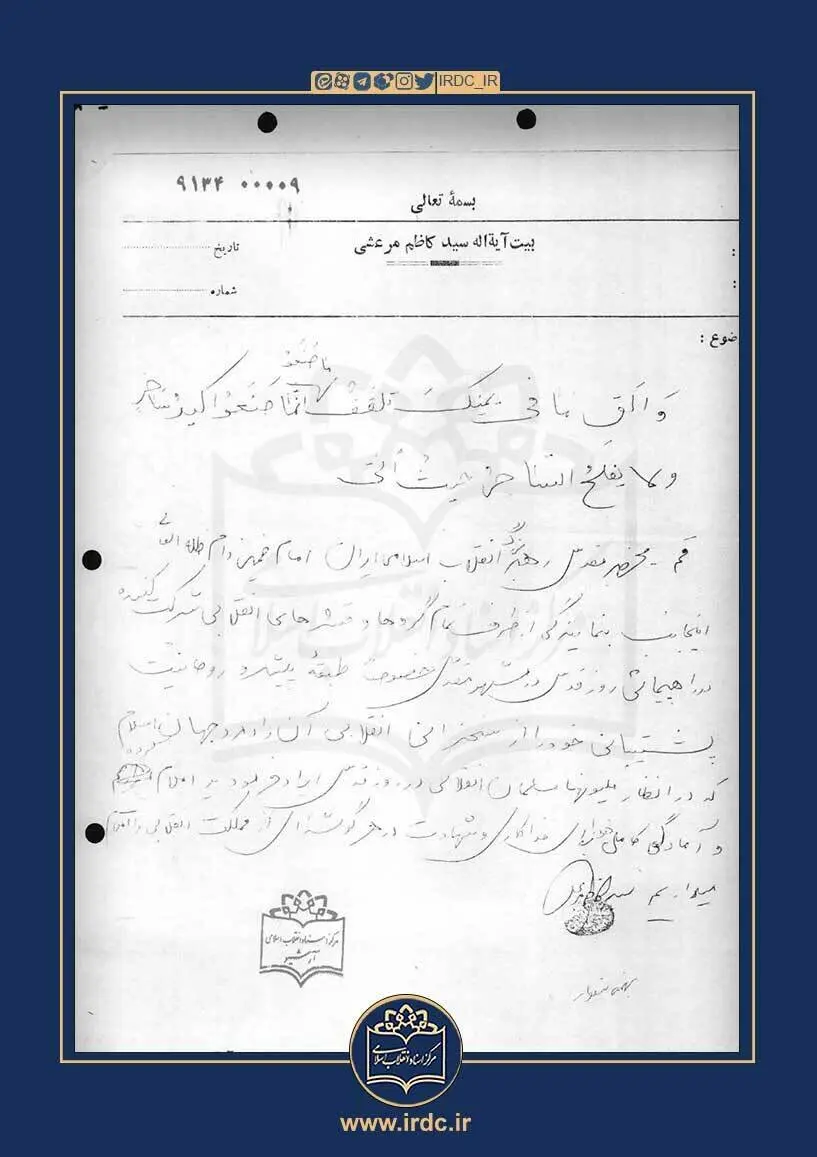 IRDC_IR
۹۱۳۴ ۰۰۰۰۹
بسمهٔ تعالی
بیت آیةاله سید کاظم مرعشی
تاریخ
شماره
ضوع :
ما صَنَعُوا
وَ اَلقِ ما فی یمینکَ تلقفْ انّما صَنَعَوُا کیدُ ساحِرٍ
ولا یفلحُ السّاحِرُ حیثُ اَتی
قم - محضر مقدس رهبر بزرگ انقلاب اسلامی ایران امام خمینی دام ظله العالی
اینجانب بنمایندگی از طرف تمام گروهها و قشرهای انقلابی شرکت کننده
در راهپیمائی روز قدس در مشهد مقدس بخصوص طبقهٔ پیشرو روحانیت
پشتیبانی خود را از سخنرانی انقلابی آن رادمرد جهان اسلام
که در انظار میلیونها مسلمان انقلابی در روز قدس ایراد فرمودید اعلام کرده
و آمادگی کامل خود برای فداکاری و شهادت در هر گوشه‌ای از مملکت انقلابی را اعلام
میداریم سید کاظم مرعشی
مرکز اسناد انقلاب اسلامی
آرشیو
مرکز اسناد انقلاب اسلامی
www.irdc.ir